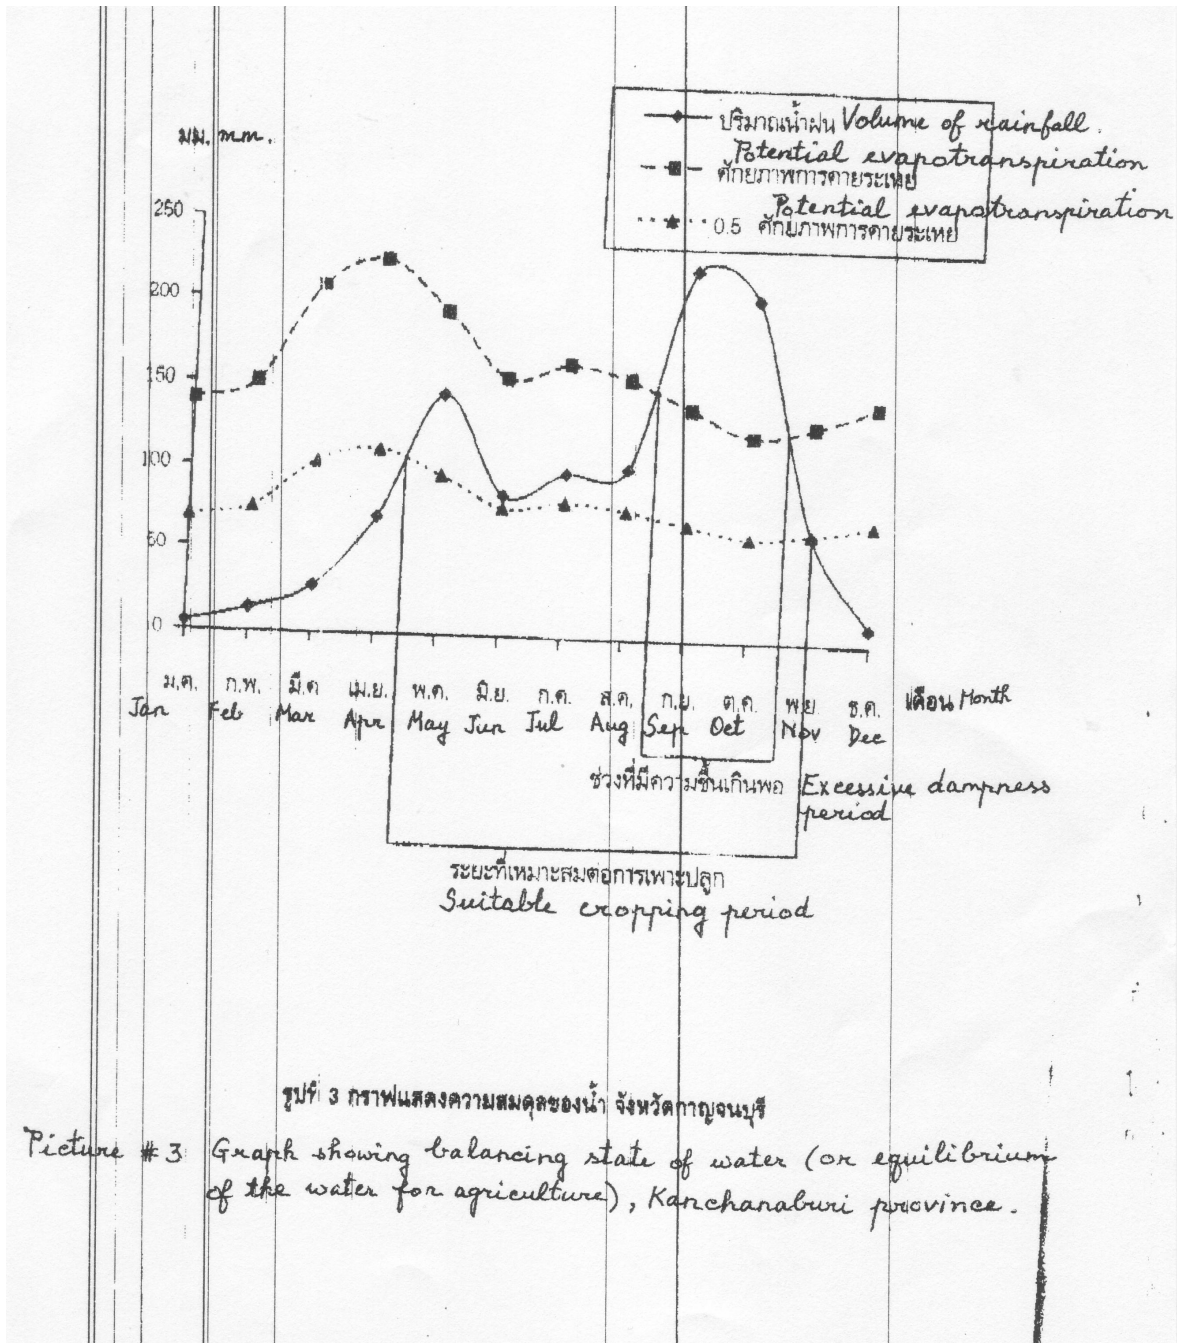 ปริมาณน้ำฝน Volume of rainfall.
Potential evapotranspiration
ศักยภาพการคายระเหย
Potential evapotranspiration
0.5 ศักยภาพการคายระเหย
มม. mm.
250
200
150
100
50
0
ม.ค. ก.พ. มี.ค เม.ย. พ.ค. มิ.ย. ก.ค. ส.ค. ก.ย. ต.ค. พ.ย. ธ.ค. เดือน Month
Jan Feb Mar Apr May Jun Jul Aug Sep Oct Nov Dec
ช่วงที่มีความชื้นเกินพอ Excessive dampness
period
ระยะที่เหมาะสมต่อการเพาะปลูก
Suitable cropping period
รูปที่ 3 กราฟแสดงความสมดุลของน้ำ จังหวัดกาญจนบุรี
Picture #3 Graph showing balancing state of water (or equilibrium
of the water for agriculture), Kanchanaburi province.